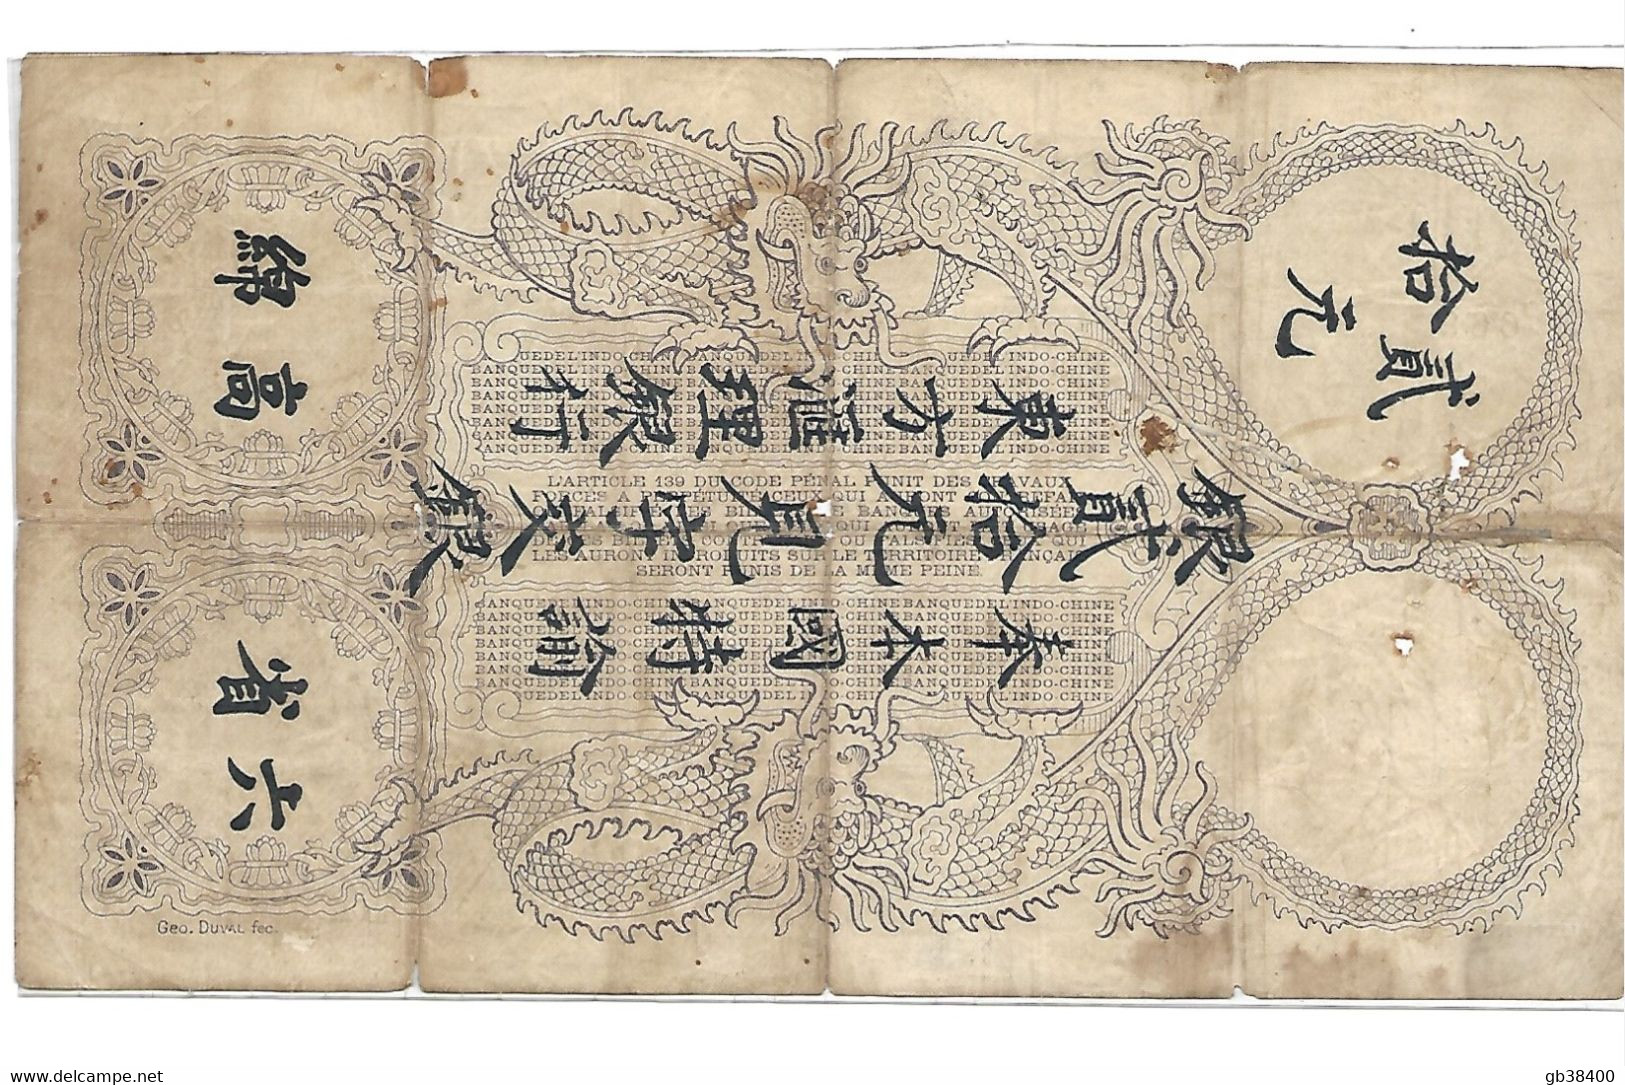 貳拾
元
奉本國特諭
銀貳拾元見字交銀
東方滙理銀行
六省
高綿
BANQUE DE L'INDO-CHINE BANQUE DE L'INDO-CHINE BANQUE DE L'INDO-CHINE
L'ARTICLE 139 DU CODE PÉNAL PUNIT DES TRAVAUX
FORCÉS A PERPÉTUITÉ CEUX QUI AURONT CONTREFAIT
OU FALSIFIÉ LES BILLETS DE BANQUES AUTORISÉES
LES AURONT INTRODUITS SUR LE TERRITOIRE FRANÇAIS
SERONT PUNIS DE LA MÊME PEINE.
BANQUE DE L'INDO-CHINE BANQUE DE L'INDO-CHINE BANQUE DE L'INDO-CHINE
Geo. DUVAL fec.
delcampe.net
gb38400